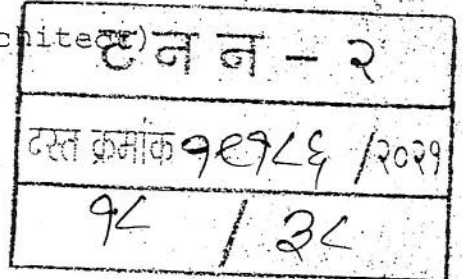 chitect)
ट न न - २
दस्त क्रमांक १९१८६ /२०२१
१८ / ३८